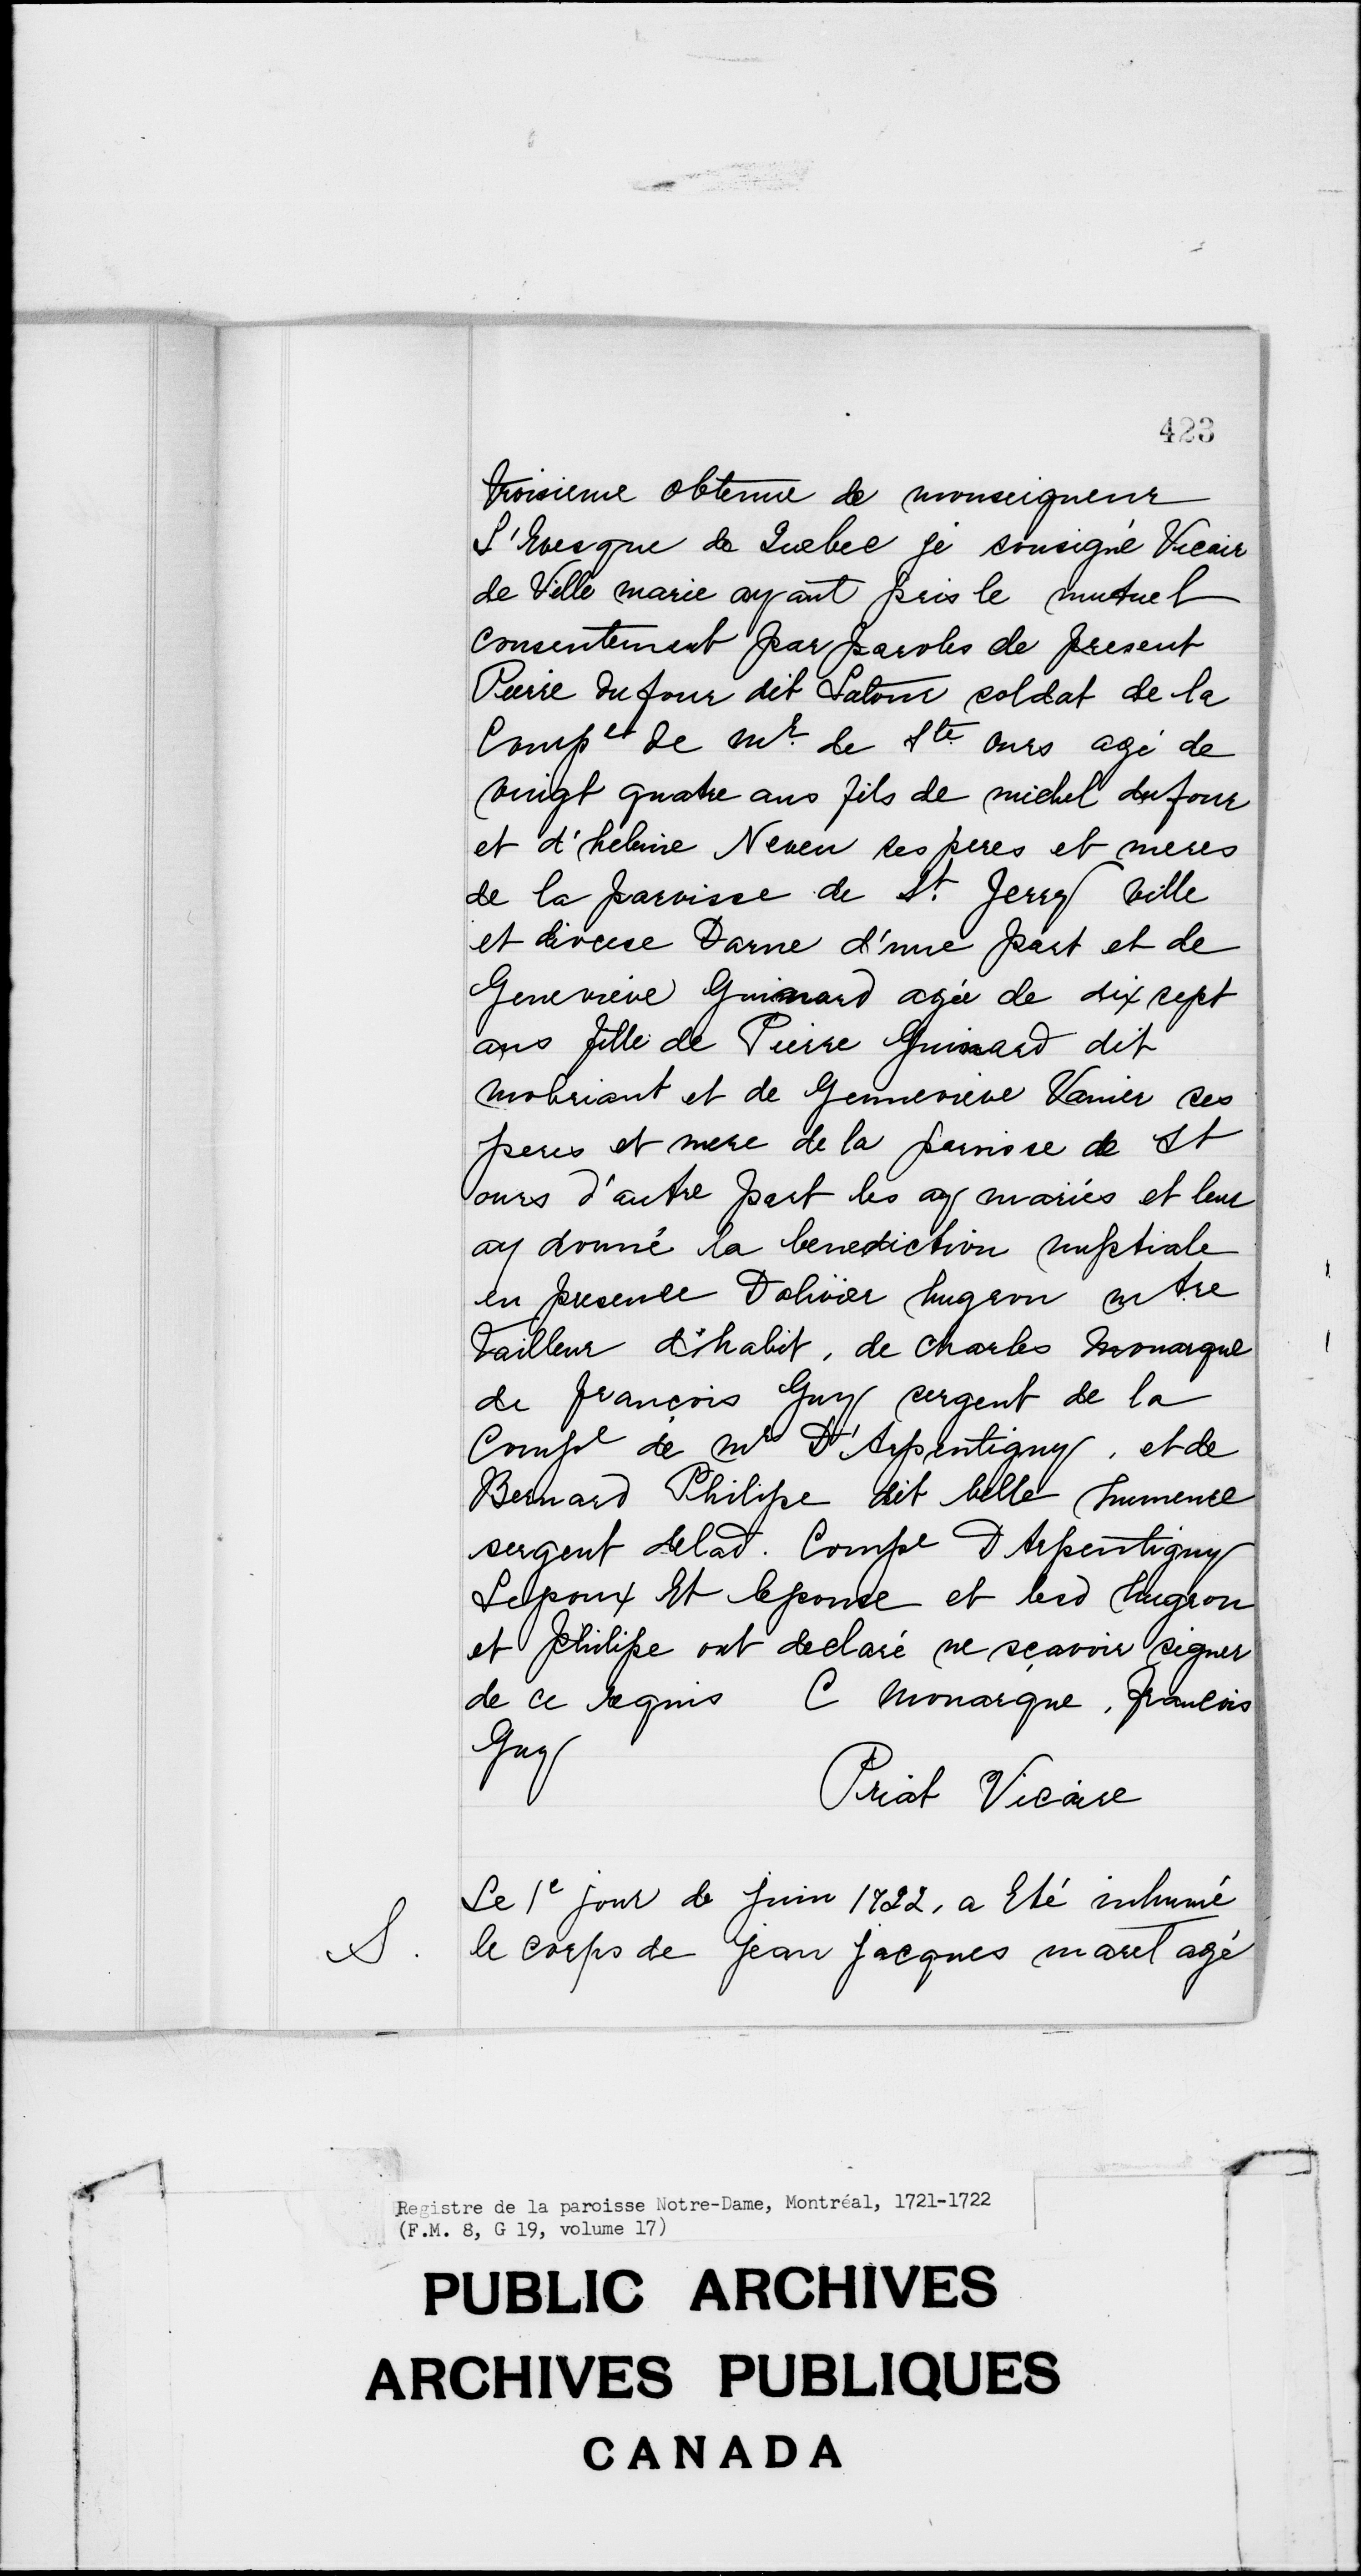 423
troisieme obtenue de monseigneur
L'Evesque de Quebec je sousigné Vicair
de Ville marie ayant pris le mutuel
consentement par paroles de present
Pierre dufour dit Latour soldat de la
Compe de mr. de Ste ours agé de
vingt quatre ans fils de michel dufour
et d'helene Neveu ses peres et meres
de la paroisse de St. Jerry ville
et diocese Darne d'une part et de
Genevieve Guimard agée de dix sept
ans fille de Pierre Guimard dit
mobriant et de Gennevieve Vanier ses
peres et mere de la paroisse de St
ours d'autre part les ay mariés et leur
ay donné la benediction nuptiale
en presence Dolivier hugron mtre
tailleur d'habit, de charles monarque
de françois Guy sergent de la
Compe de mr D'Arpentigny, et de
Bernard Philipe dit belle humeure
sergent delad. Compe D Arpentigny
Lepoux Et leponse et lesd hugron
et philipe ont declaré ne sçavoir signer
de ce requis C monarque, francois
Guy
Priat Vicaire
Le 1e jour de juin 1722, a Eté inhumé
S. le corps de jean jacques marel agé
Registre de la paroisse Notre-Dame, Montréal, 1721-1722
(F.M. 8, G 19, volume 17)
PUBLIC ARCHIVES
ARCHIVES PUBLIQUES
CANADA